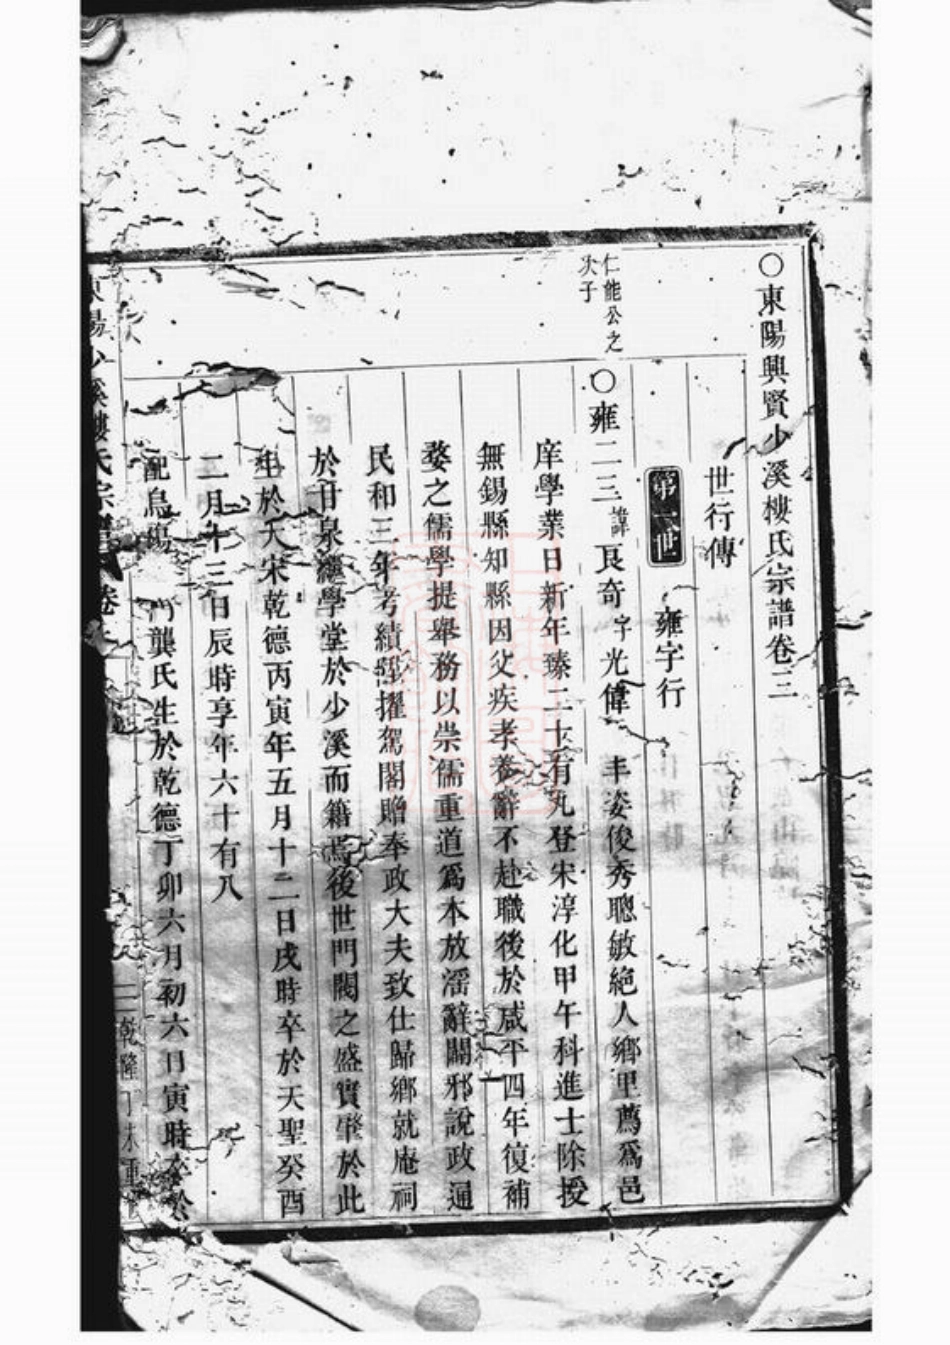 〇東陽興賢少溪樓氏宗譜卷三
世行傳
第一世 雍字行
仁能公之
次子
〇雍二三諱良奇字光偉 丰姿俊秀聰敏絕人鄉里薦爲邑
庠學業日新年臻二十有九登宋淳化甲午科進士除授
無錫縣知縣因父疾孝養辭不赴職後於咸平四年復補
婺之儒學提舉務以崇儒重道爲本放淫辭闢邪說政通
民和三年考績擢駕閣贈奉政大夫致仕歸鄉就庵祠
於甘泉學堂於少溪而籍焉後世門閥之盛實肇於此
生於大宋乾德丙寅年五月十二日戌時卒於天聖癸酉
二月十三日辰時享年六十有八
配烏傷 門龔氏生於乾德丁卯六月初六日寅時卒於
東陽少溪樓氏宗譜 卷 二 乾隆丁未重